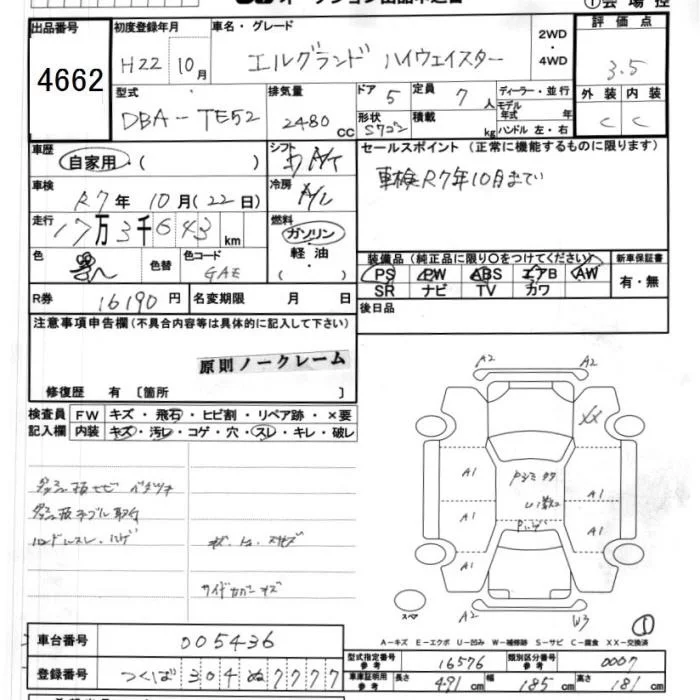 出品番号 4662
初度登録年月 H22 10月
車名・グレード エルグランド ハイウェイスター
2WD・4WD
評価点 3.5
外装 内装
C C
型式 DBA-TE52
排気量 2480cc
ドア 5
定員 7人
形状 Sワゴン
積載 kg
ディーラー・並行
モデル年式 年
ハンドル 左・右
車歴 自家用・( )
シフト
車検 R7年10月(22日)
冷房
走行 17万3千643km
燃料 ガソリン・軽油・( )
色 黒
色替
色コード GAE
R券 16190円
名変期限 月 日
セールスポイント (正常に機能するものに限ります)
車検R7年10月まで
装備品(純正品に限り○をつけてください)
PS PW ABS エアB AW
SR ナビ TV カワ
新車保証書
有・無
後日品
注意事項申告欄(不具合内容等は具体的に記入して下さい)
原則ノークレーム
修復歴 有〔箇所 〕
検査員記入欄
FW キズ・飛石・ヒビ割・リペア跡・×要
内装 キズ・汚レ・コゲ・穴・スレ・キレ・破レ
ハンドルスレ・ハゲ
A2 A2
XX
A1 A1
A1 A1
A1 A1
A2 W3
スペア
①
A-キズ E-エクボ U-凹み W-補修跡 S-サビ C-腐食 XX-交換済
車台番号 005436
登録番号 つくば 304 ぬ 7777
型式指定番号 参考 16576
類別区分番号 参考 0007
車庫証明用 参考 長さ 491cm 幅 185cm 高さ 181cm